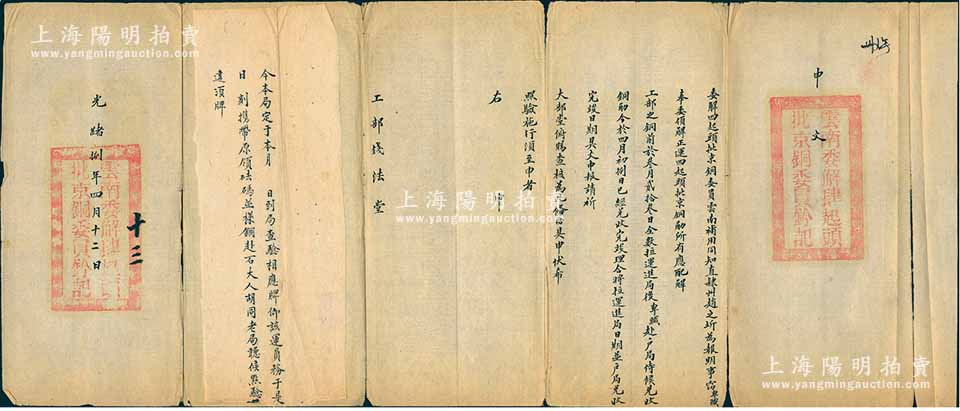 申文
雲南委解肆起頭批京銅委員鈐記
委解四起頭批京銅委員雲南補用同知直隸州趙之圻為報明事
奉委領解正運四起頭批京銅所有應配解
工部之銅前於叁月貳拾叁日全數拉運進局後卑職赴戶局侍候兌收
銅觔今於四月初捌日已經兌收完竣理合將拉運進局日期並戶局兌收
完竣日期具文申報請祈
大部堂俯賜查核為此備由具申伏布
照驗施行須至申者
右
申
工部錢法堂
今本局定于本月 日到局查驗相應牌仰該運員務于是
日 刻攜帶原領砝碼並樣銅赴石大人胡同老局聽候點驗
違須牌
光緒捌年四月十二日
十三
雲南委解肆起頭批京銅委員鈐記
上海陽明拍賣
www.yangmingauction.com
上海陽明拍賣
www.yangmingauction.com
上海陽明拍賣
www.yangmingauction.com
上海陽明拍賣
www.yangmingauction.com